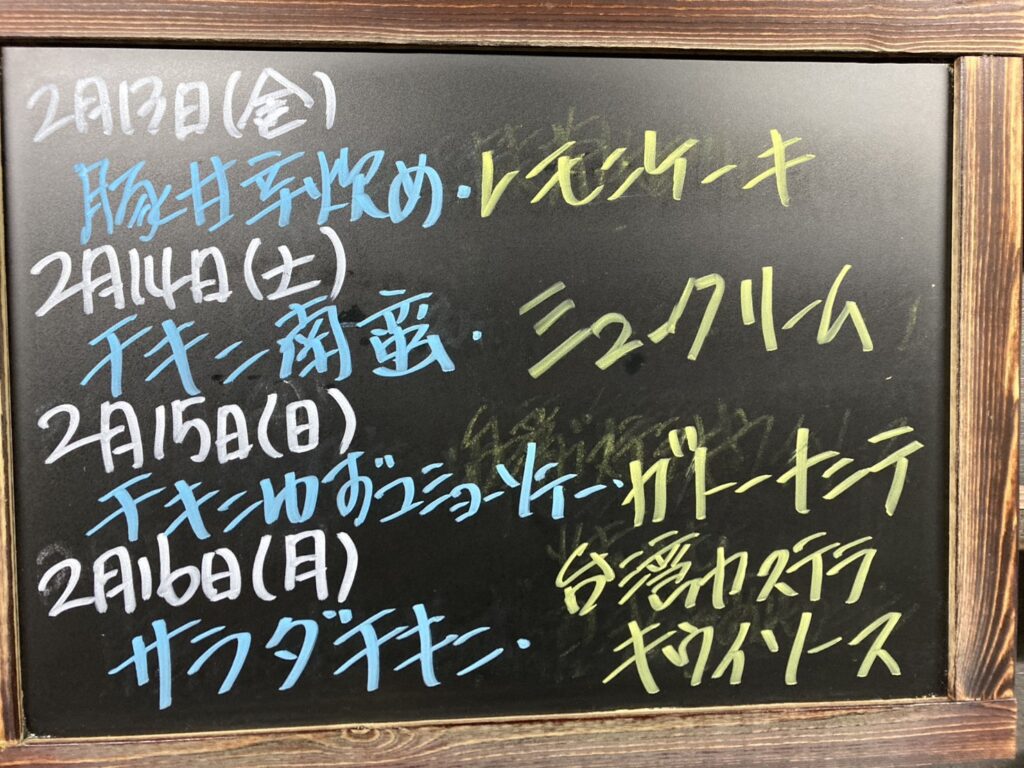 2月13日(金)
豚甘辛炊め・レモンケーキ
2月14日(土)
チキン南蛮・シュークリーム
2月15日(日)
チキンゆずコショーソテー・ガトーナンテ
2月16日(月)
サラダチキン・台湾カステラ
キウイソース